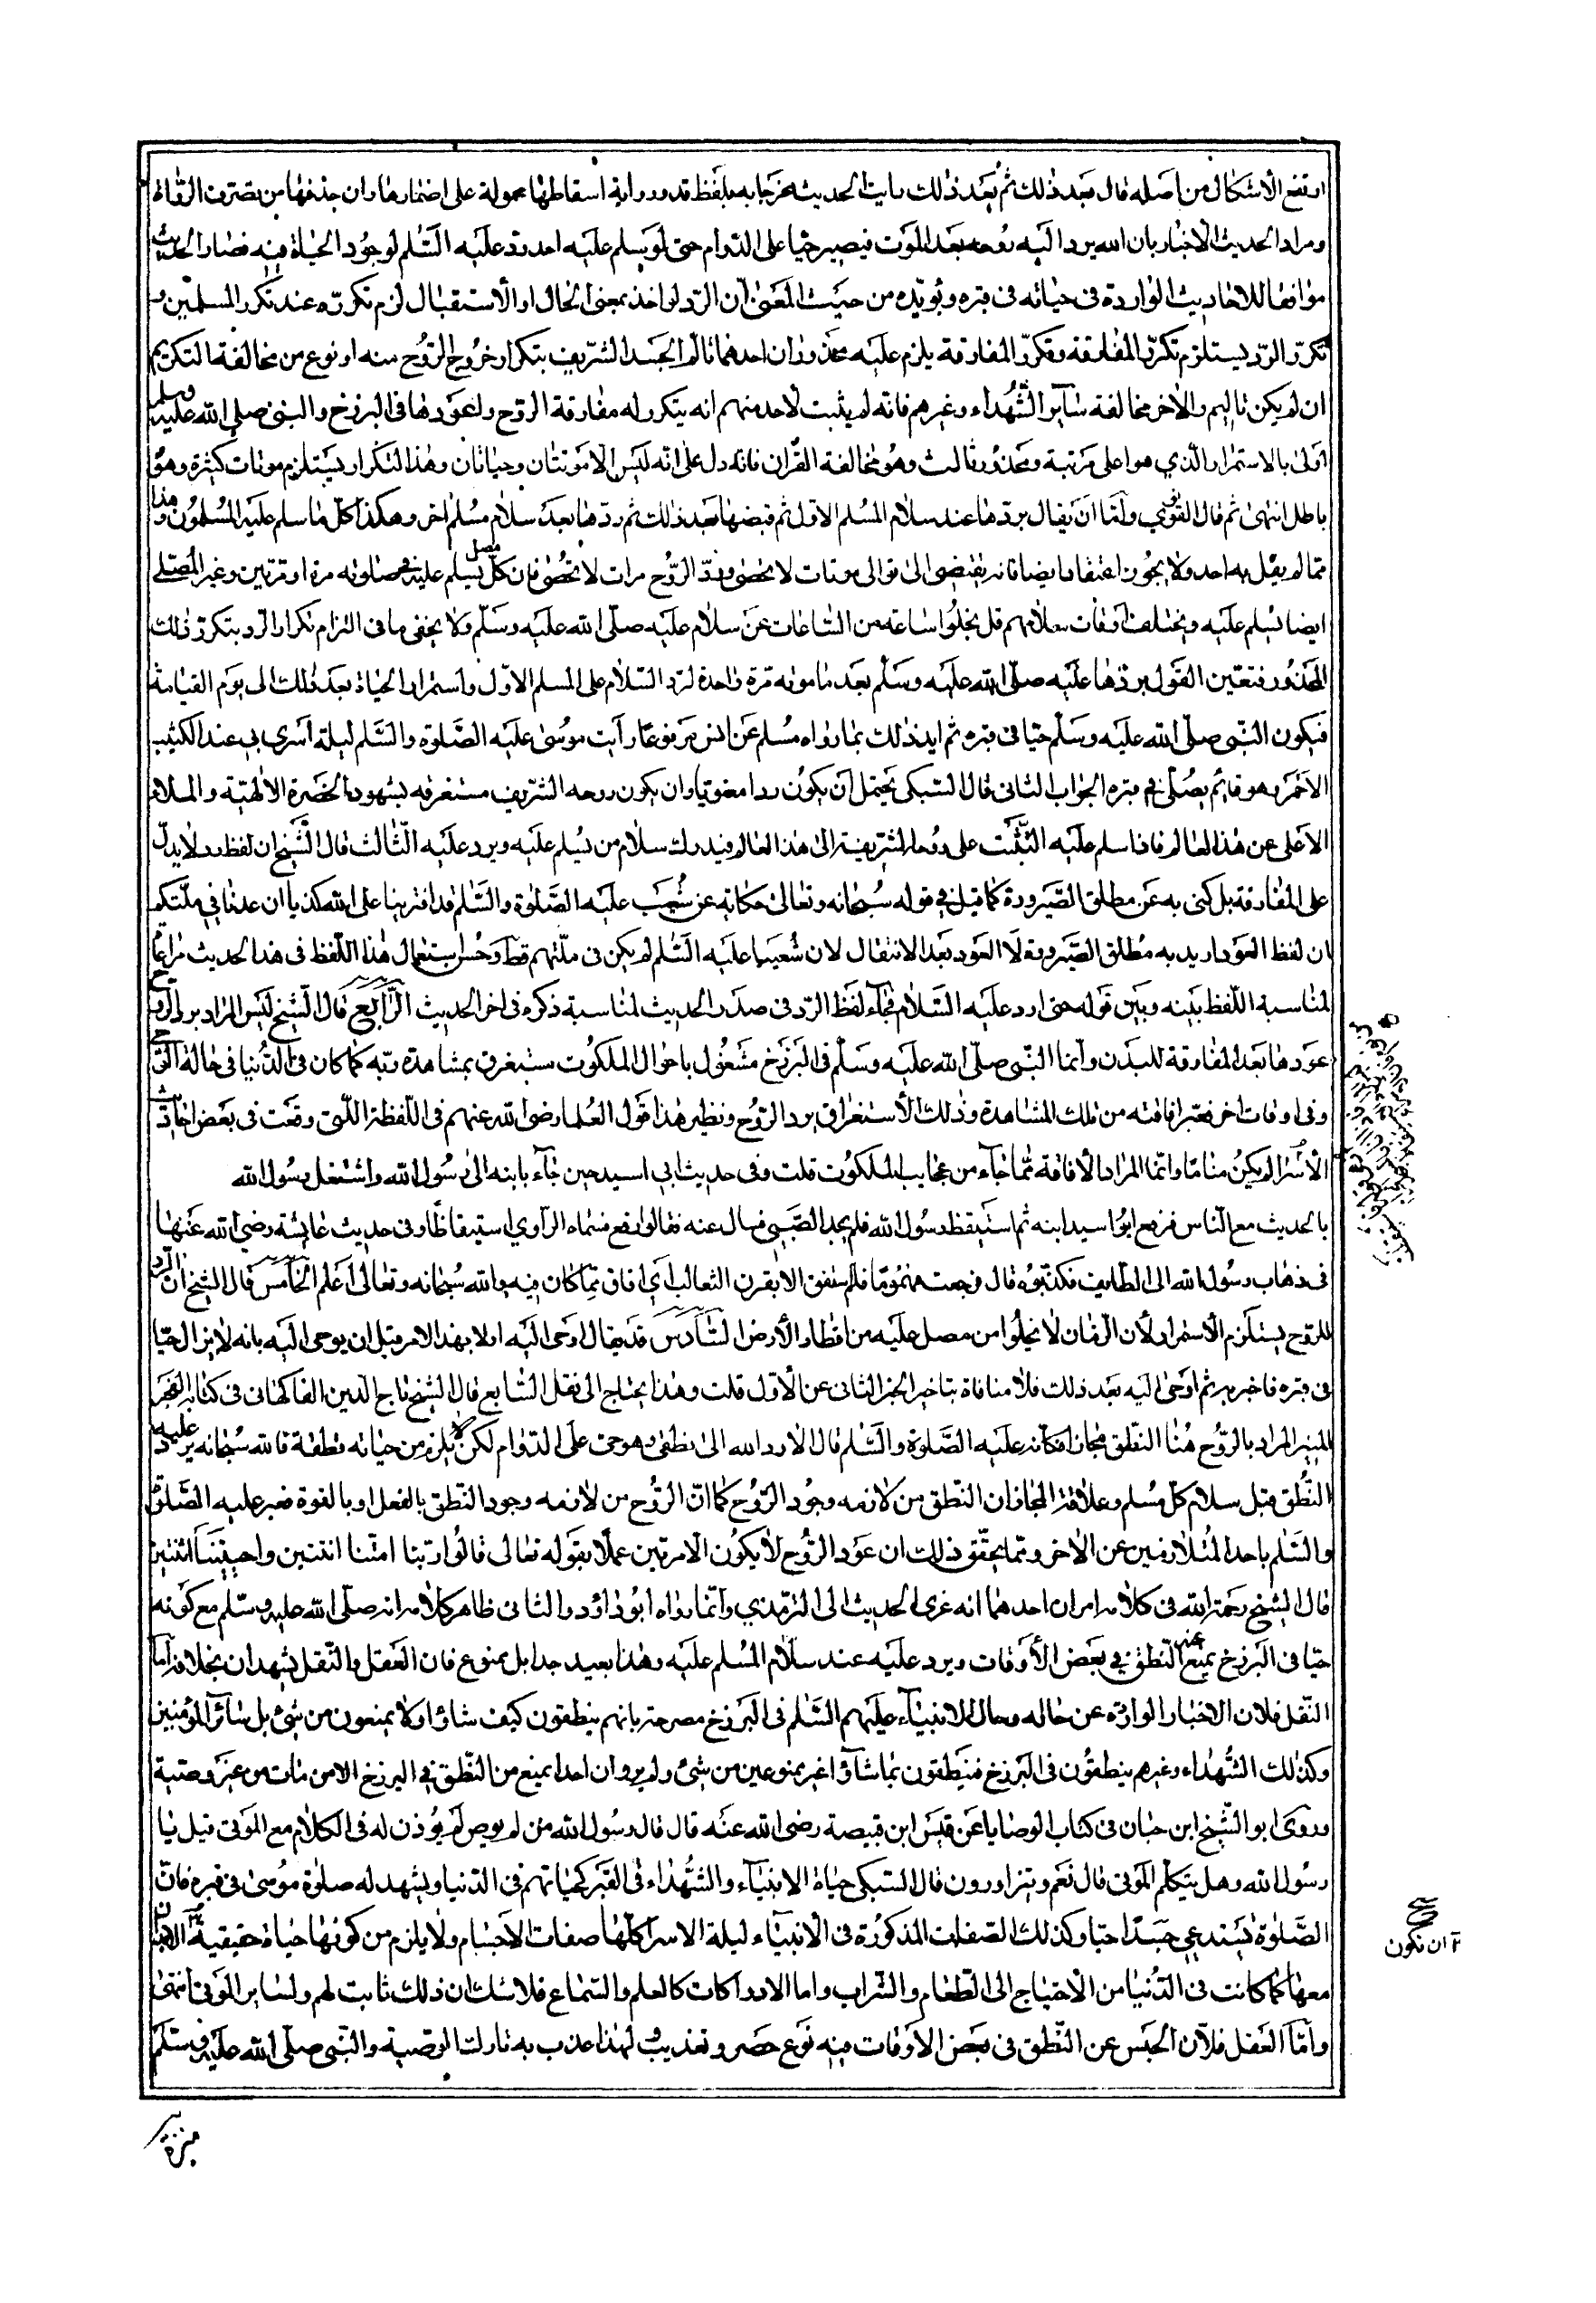 ارتفع الاشكال من اصله قال بعد ذلك ثم بعد ذلك رايت الحديث مخرجا به بلفظ قد ورواية اسقاطها محمولة على اضمارها وان حذفها من تصرف الرواة
ومراد الحديث الاخبار بان الله يرد اليه روحه بعد الموت فيصير حيا على الدوام حتى لو يسلم عليه احد رد عليه السلم لوجود الحياة فيه فصار الحديث
موافقا للاحاديث الواردة فى حياته فى قبره ويؤيده من حيث المعنى ان الرد لو اخذ بمعنى الحال او الاستقبال لزم تكرره عند تكرر المسلمين و
تكرر الرد يستلزم تكرر المفارقة وتكرر المفارقة يلزم عليه محذوران احدهما تالم الجسد الشريف بتكرار خروج الروح منه او نوع من مخالفة التكريم
ان لم يكن تاليم والاخر مخالفة سآير الشهداء وغيرهم فانه لم يثبت لاحد منهم انه يتكرر له مفارقة الروح وعودها فى البرزخ والنبى صلى الله عليه وسلم
اولى بالاستمرار الذي هو اعلى مرتبة ومحذور ثالث وهو مخالفة القران فانه دل على انه ليس الا موتتان وحياتان وهذا التكرار يستلزم موتات كثيرة وهو
باطل انتهى ثم قال القونوي ولنا ان يقال بردها عند سلام المسلم الاول ثم قبضها بعد ذلك ثم ردها بعد سلام مسلم اخر وهكذا كل ما سلم عليه المسلمون وهذا
مما لم يقل به احد ولا يجوز اعتقاده ايضا فانه يقتضى الى توالى موتات لا تحصى ورد الروح مرات لا تحصى فان كل مصل يسلم عليه فى صلوته مرة او مرتين وغير المصلى
ايضا يسلم عليه ويختلف اوقات سلامهم قل يخلوا ساعة من الساعات عن سلام عليه صلى الله عليه وسلم ولا يخفى ما فى التزام تكرار الرد بتكرر ذلك
المحذور فتعين القول بردها عليه صلى الله عليه وسلم بعد ما موته مرة واحدة لرد السلام على المسلم الاول واستمرار الحياة بعد ذلك الى يوم القيامة
فيكون النبى صلى الله عليه وسلم حيا فى قبره ثم ايد ذلك بما رواه مسلم عن انس مرفوعا رايت موسى عليه الصلوة والسلم ليلة اسري بي عند الكثيب
الاحمر وهو قائم يصلى في قبره الجواب الثانى قال السبكى يحتمل ان يكون ردا معنويا وان يكون روحه الشريف مستغرقه بشهود الحضرة الالهية والملاء
الاعلى عن هذا العالم فاذا سلم عليه على روحه الشريفة الى هذا العالم فيدرك سلام من يسلم عليه ويرد عليه الثالث قال الشيخ ان لفظ رد لا يدل
على المفارقة بل كنى به عن مطلق الصيرورة كما قيل في قوله سبحانه وتعالى حكاية عن شعيب عليه الصلوة والسلم قد افترينا على الله كذبا ان عدنا في ملتكم
ان لفظ العود اريد به مطلق الصيرورة لا العود بعد الانتقال لان شعيبا عليه السلم لم يكن فى ملتهم قط وحسن استعمال هذا اللفظ فى هذا الحديث مراعاة
لمناسبة اللفظ بينه وبين قوله حتى ارد عليه السلام فجآء لفظ الرد فى صدر الحديث لمناسبة ذكره فى اخر الحديث الرابع قال الشيخ ليس المراد برد الروح
عودها بعد المفارقة للبدن وانما النبى صلى الله عليه وسلم فى البرزخ مشغول باحوال الملكوت مستغرق بمشاهدة ربه كما كان فى الدنيا فى حالة الوحى
وفى اوقات اخر فعبر افاقته من تلك المشاهدة وذلك الاستغراق برد الروح ونظير هذا قول العلما رضى الله عنهم فى اللفظة التى وقعت فى بعض احاديث
الاسرا لم يكن مناما وانما المراد الافاقة مما جآء من عجايب الملكوت قلت وفى حديث ابي اسيد حين جآء بابنه الى رسول الله واشتغل رسول الله
بالحديث مع الناس فرفع ابو اسيد ابنه ثم استيقظ رسول الله فلم يجد الصبى فسال عنه فقالوا رفع فسماه الراوي استيقاظا وفى حديث عايشة رضى الله عنها
فى ذهاب رسول الله الى الطايف فكذبوه قال فرجعت مهموما فلم استفق الا بقرن الثعالب اي افاق مما كان فيه والله سبحانه وتعالى اعلم الخامس قال الشيخ ان الرد
للروح يستلزم الاستمرار لأن الزمان لا يخلوا من مصل عليه من اقطار الأرض السادس قد يقال اوحى اليه اولا بهذا الامر قبل ان يوحى اليه بانه لا يزال حيا
فى قبره فاخبر به ثم اوحى اليه بعد ذلك فلا منافاة بتاخير الخبر الثانى عن الاول قلت وهذا يحتاج الى نقل السابع قال الشيخ تاج الدين الفاكهانى فى كتابه الفجر
المنير المراد بالروح هنا النطق مجازا فكانه عليه الصلوة والسلم قال الا رد الله الى نطقى وهو حى على الدوام لكن لا يلزم من حياته نطقه فالله سبحانه يرد عليه
النطق قبل سلام كل مسلم وعلاقة المجاز ان النطق من لازمه وجود الروح كما ان الروح من لازمه وجود النطق بالفعل او بالقوة فعبر عليه الصلوة
والسلم باحد المتلازمين عن الاخر ومما يحقق ذلك ان عود الروح لا يكون الا مرتين عملا بقوله تعالى قالوا ربنا امتنا اثنتين واحييتنا اثنتين
قال الشيخ رحمة الله فى كلامه امران احدهما انه عزى الحديث الى الترمذي وانما رواه ابو داؤد والثانى ظاهر كلامه انه صلى الله عليه وسلم مع كونه
حيا فى البرزخ يمنع عنه النطق في بعض الأوقات ويرد عليه عند سلام المسلم عليه وهذا بعيد جدا بل ممنوع فان العقل والنقل يشهدان بخلافه اما
النقل فلان الاخبار الواردة عن حاله وحال الانبياء عليهم السلم فى البرزخ مصرحة بانهم ينطقون كيف شاؤا ولا يمنعون من شئ بل سائر المؤمنين
وكذلك الشهداء وغيرهم ينطقون فى البرزخ فينطقون بما شاؤا غير ممنوعين من شئ ولم يرو ان احدا يمنع من النطق في البرزخ الا من مات من غير وصية
وروى ابو الشيخ ابن حبان فى كتاب الوصايا عن قيس ابن قبيصة رضى الله عنه قال قال رسول الله من لم يوص لم يؤذن له فى الكلام مع الموتى قيل يا
رسول الله وهل يتكلم الموتى قال نعم ويتزاورون قال السبكى حياة الانبيآء والشهداء فى القبر كحياتهم فى الدنيا ويشهد له صلوة موسى فى قبره فان
الصلوة تستدعي جسدا حيا وكذلك الصفات المذكورة فى الانبيآء ليلة الاسرا كلها صفات الاجسام ولا يلزم من كونها حياة حقيقية الابدان
معها كما كانت فى الدنيا من الاحتياج الى الطعام والشراب واما الادراكات كالعلم والسماع فلا شك ان ذلك ثابت لهم ولساير الموتى انتهى
وامّا العقل فلأن الحبس عن النطق فى بعض الاوقات فيه نوع حصر وتعذيب ولهذا عذب به تارك الوصية والنبى صلى الله عليه وسلم
ان تكون
منزه